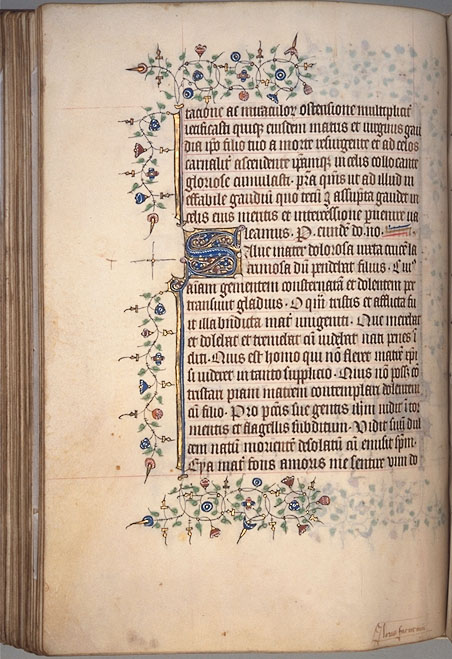 tacione ac miraculor ostensione multiplicit
letificasti quisq eiusdem matris et virginis gau
dia ipo filio tuo a morte resurgente et ad celos
carnalit ascendente ipamq in celis collocante
gloriose cumulasti. pra qis ut ad illud in
effabile gaudiū quo tecū assūpta gaudet in
celis eius meritis et intercessione peruenire va
leamus. P. eundē dō. no.
mater dolorosa iuxta crucē la
crimosa dū pendebat filius. Cui9
aīam gementem et dolentem per
transiuit gladius. O qm̄ tristis et afflicta fu
it illa bn̄dicta mat unigeniti. Que merebat
et dolebat et tremebat cū videbat nati penas ī
cliti. Quis est homo qui nō fleret matrē xp̄i
si videret in tanto supplicio. Quis nō posset cō
tristari piam matrem contemplari dolentem
cū filio. Pro pctīs sue gentis ihm̄ vidit ī tor
mentis et flagellis subditum. Vidit suū dul
cem natū morientē desolatū cū emisit spm̄.
Eya mat fons amoris me sentire vim do